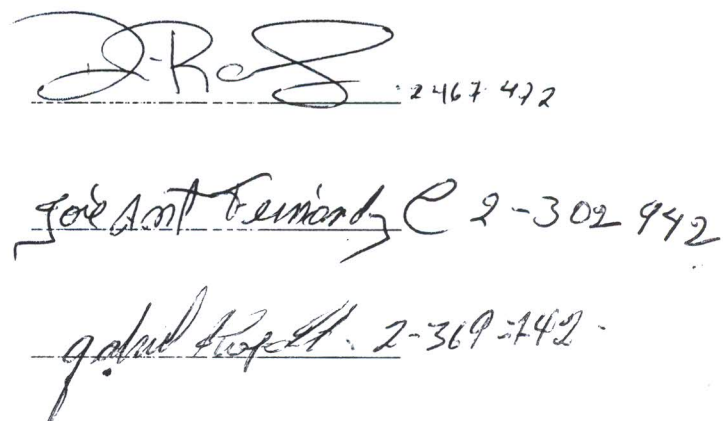 2 467 472
José Ant Fernández C 2-302 942
Gabriel 2-369-742